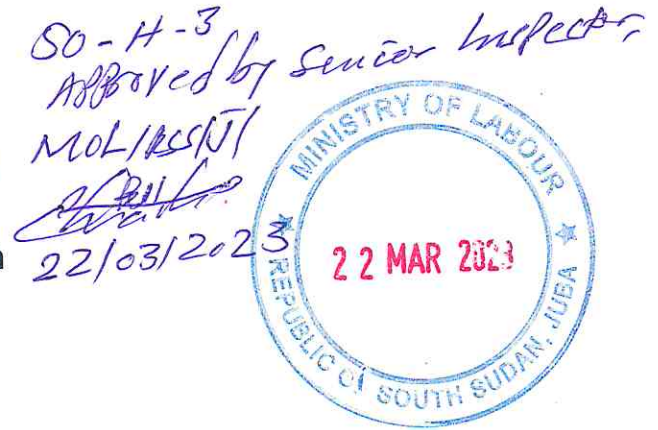 SO-H-3
Approved by Senior Inspector,
MOL/RSS/J/
22/03/2023
MINISTRY OF LABOUR
22 MAR 2023
REPUBLIC OF SOUTH SUDAN, JUBA